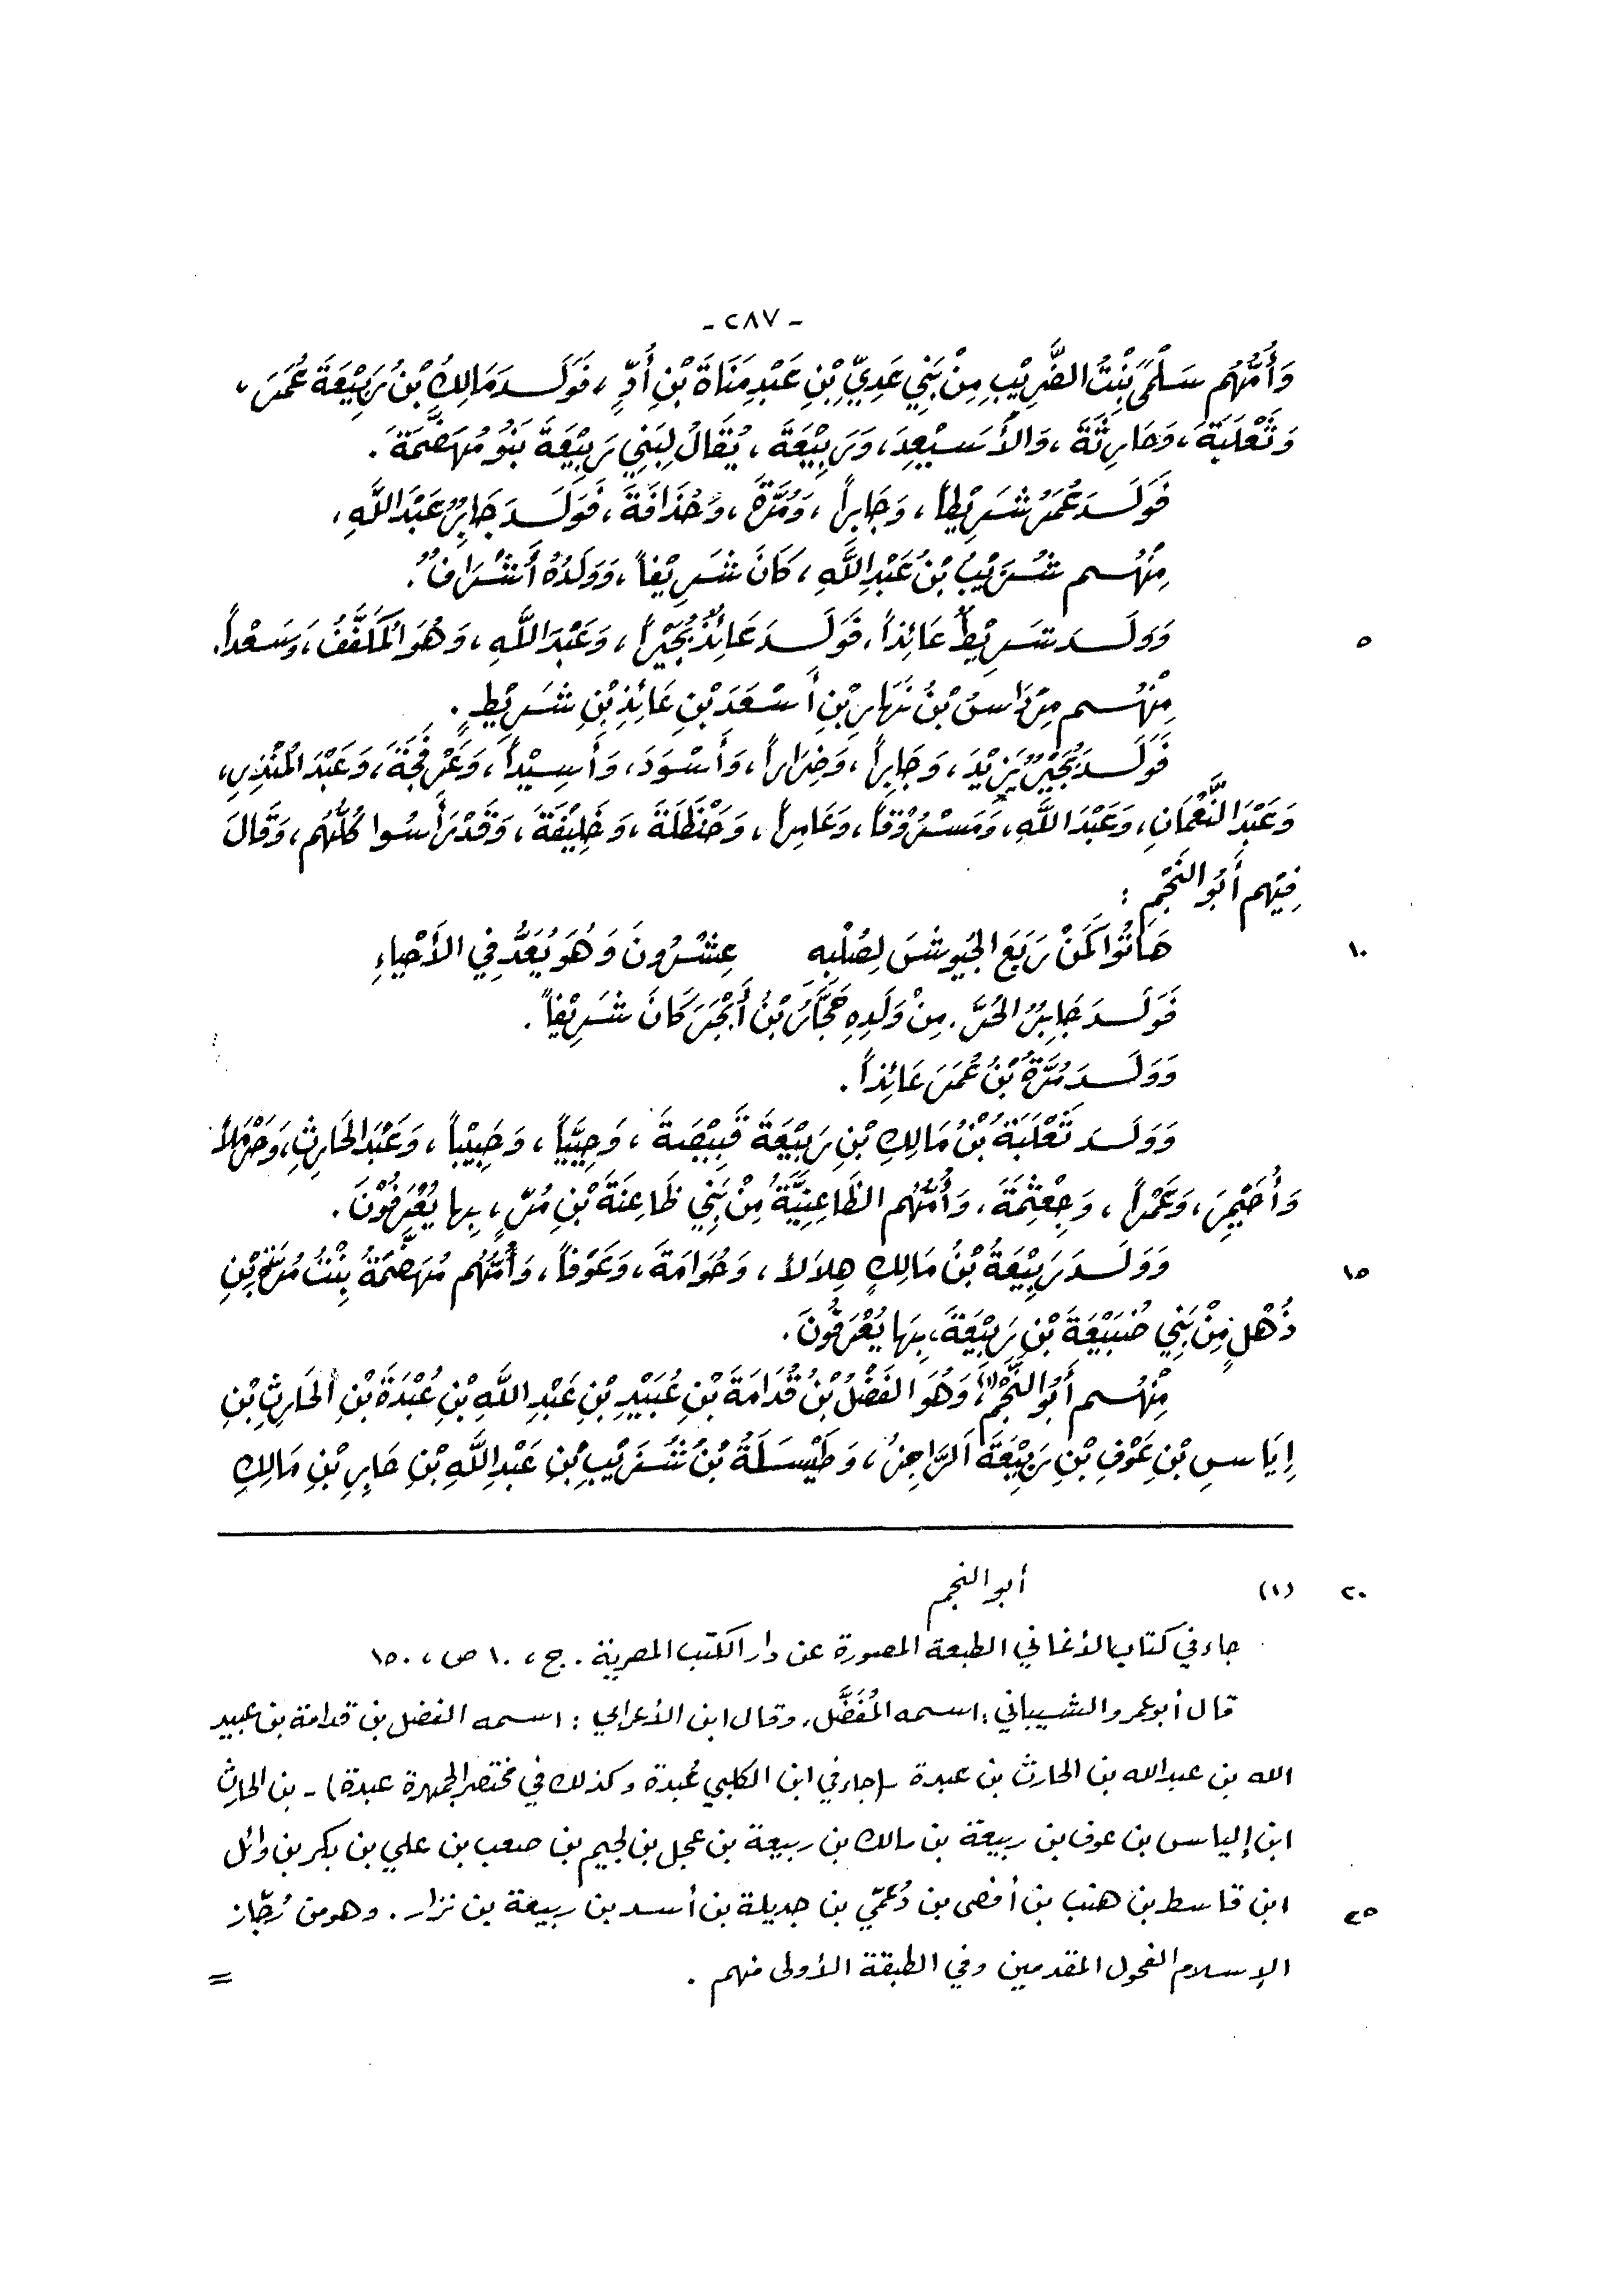 - ٢٨٧ -
وَأُمُّهُم سَلْمَى بِنْتُ الضَّرِيْبِ مِنْ بَنِي عَدِيِّ بْنِ عَبْدِ مَنَاةَ بْنِ أُدٍّ، فَوَلَدَ مَالِكُ بْنُ رَبِيْعَةَ عُمَرَ،
وَثَعْلَبَةَ، وَحَارِثَةَ، وَالأَسَيْعِدَ، وَرَبِيْعَةَ، يُقَالُ لِبَنِي رَبِيْعَةَ بَنُو مُهَضَّمَةَ.
فَوَلَدَ عُمَرُ شَرِيْطاً، وَجَابِراً، وَمُرَّةَ، وَحُذَافَةَ، فَوَلَدَ جَابِرٌ عَبْدَ اللَّهِ،
مِنْهُم شُرَيْبُ بْنُ عَبْدِ اللَّهِ، كَانَ شَرِيْفاً، وَوَلَدُهُ أَشْرَافٌ.
٥ وَوَلَدَ شَرِيْطٌ عَائِذاً، فَوَلَدَ عَائِذٌ بُجَيْراً، وَعَبْدَ اللَّهِ، وَهُوَ المُلَفَّفُ، وَسَعْداً.
مِنْهُم مِرْدَاسُ بْنُ نَهَارِ بْنِ أَسْعَدَ بْنِ عَائِذِ بْنِ شَرِيْطٍ.
فَوَلَدَ بُجَيْرٌ يَزِيْدَ، وَجَابِراً، وَضِرَاراً، وَأَسْوَدَ، وَأَسِيْداً، وَعَرْفَجَةَ، وَعَبْدَ المُنْذِرِ،
وَعَبْدَ النُّعْمَانِ، وَعَبْدَ اللَّهِ، وَمَسْرُوْقاً، وَعَامِراً، وَحَنْظَلَةَ، وَخَلِيْفَةَ، وَقَدْ رَأَسُوا كُلُّهُم، وَقَالَ
فِيْهِم أَبُو النَّجْمِ:
١٠ هَاتُوا كَمَنْ رَبَعَ الجُيُوشَ لِصُلْبِهِ عِشْرُونَ وَهُوَ يُعَدُّ فِي الأَحْيَاءِ
فَوَلَدَ جَابِرٌ الحُرَّ. مِنْ وَلَدِهِ حَجَّارُ بْنُ أَبْجَرَ كَانَ شَرِيْفاً.
وَوَلَدَ مُرَّةُ بْنُ عُمَرَ عَائِذاً.
وَوَلَدَ ثَعْلَبَةُ بْنُ مَالِكِ بْنِ رَبِيْعَةَ قَبِيْصَةَ، وَحُيَيّاً، وَحَبِيْباً، وَعَبْدَ الحَارِثِ، وَحَرْمَلاً
وَأُحَيْمِرَ، وَعَمْراً، وَجِعْثِمَةَ، وَأُمُّهُم الظَّاعِنِيَّةُ مِنْ بَنِي ظَاعِنَةَ بْنِ مُرٍّ، بِها يُعْرَفُوْنَ.
١٥ وَوَلَدَ رَبِيْعَةُ بْنُ مَالِكٍ هِلاَلاً، وَحُوَامَةَ، وَعَوْفاً، وَأُمُّهُم مُهَضَّمَةُ بِنْتُ مُرَّةَ بْنِ
ذُهْلٍ مِنْ بَنِي ضُبَيْعَةَ بْنِ رَبِيْعَةَ، بِهَا يُعْرَفُونَ.
مِنْهُم أَبُو النَّجْمِ(١)، وَهُوَ الفَضْلُ بْنُ قُدَامَةَ بْنِ عُبَيْدِ بْنِ عَبْدِ اللَّهِ بْنِ عُبْدَةَ بْنِ الحَارِثِ بْنِ
إِيَاسِ بْنِ عَوْفِ بْنِ رَبِيْعَةَ الرَّاجِزُ، وَطَيْسَلَةُ بْنُ شُرَيْبِ بْنِ عَبْدِ اللَّهِ بْنِ جَابِرِ بْنِ مَالِكِ
٢٠ (١) أبو النجم
جاء في كتاب الأغاني الطبعة المصورة عن دار الكتب المصرية. ج، ١٠ ص، ١٥٠
قال أبو عمرو الشيباني: اسمه المُفَضَّل، وقال ابن الأعرابي: اسمه الفضل بن قدامة بن عبيد
الله بن عبدالله بن الحارث بن عبدة -(جاء في ابن الكلبي عُبدة وكذلك في مختصر الجمهرة عبدة)- بن الحارث
ابن إلياس بن عوف بن ربيعة بن مالك بن ربيعة بن عجل بن لجيم بن صعب بن علي بن بكر بن وائل
٢٥ ابن قاسط بن هنب بن أفصى بن دُعْمّي بن جديلة بن أسد بن ربيعة بن نزار. وهو من رُجّاز
الإسلام الفحول المقدمين وفي الطبقة الأولى منهم. =